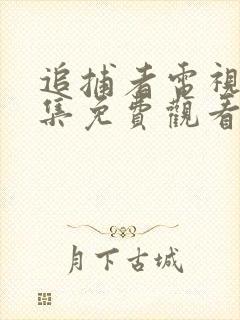 追捕者電視
集免費觀看
月下古城